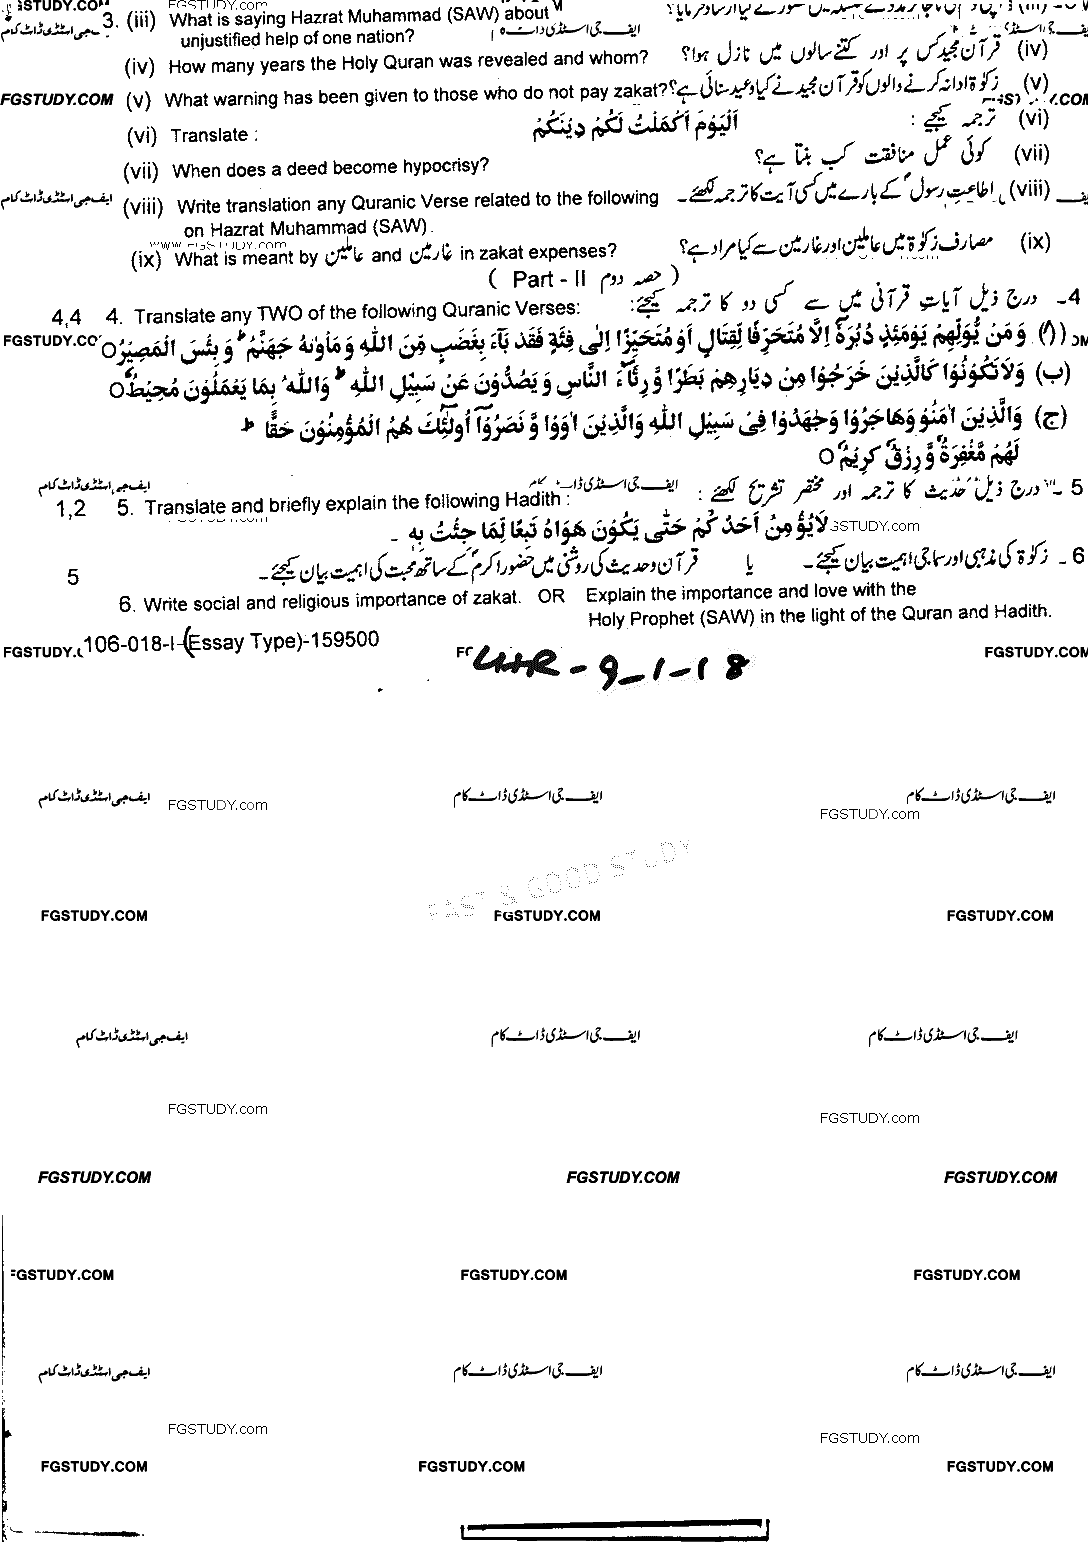 FGSTUDY.com
3. (iii) What is saying Hazrat Muhammad (SAW) about
unjustified help of one nation?
ایف جی اسٹڈی ڈاٹ کام
(iv) How many years the Holy Quran was revealed and whom? قرآن مجید کس پر اور کتنے سالوں میں نازل ہوا؟ (iv)
FGSTUDY.COM (v) What warning has been given to those who do not pay zakat? زکوٰۃ ادا نہ کرنے والوں کو قرآن مجید نے کیا وعید سنائی ہے؟ (v)
(vi) Translate : اَلْيَوْمَ اَكْمَلْتُ لَكُمْ دِيْنَكُمْ ترجمہ کیجیے : (vi)
(vii) When does a deed become hypocrisy? کوئی عمل منافقت کب بنتا ہے؟ (vii)
ایف جی اسٹڈی ڈاٹ کام (viii) Write translation any Quranic Verse related to the following اطاعتِ رسولؐ کے بارے میں کسی آیت کا ترجمہ لکھئے۔ (viii)
on Hazrat Muhammad (SAW).
(ix) What is meant by عاملین and غارمین in zakat expenses? مصارف زکوٰۃ میں عاملین اور غارمین سے کیا مراد ہے؟ (ix)
( Part - II حصہ دوم )
4,4 4. Translate any TWO of the following Quranic Verses: 4۔ درج ذیل آیاتِ قرآنی میں سے کسی دو کا ترجمہ کیجئے:
(ا) وَمَنْ يُّوَلِّهِمْ يَوْمَئِذٍ دُبُرَهٗٓ اِلَّا مُتَحَرِّفًا لِّقِتَالٍ اَوْ مُتَحَيِّزًا اِلٰى فِئَةٍ فَقَدْ بَآءَ بِغَضَبٍ مِّنَ اللّٰهِ وَمَاْوٰىهُ جَهَنَّمُ ؕ وَبِئْسَ الْمَصِيْرُ○
(ب) وَلَا تَكُوْنُوْا كَالَّذِيْنَ خَرَجُوْا مِنْ دِيَارِهِمْ بَطَرًا وَّرِئَآءَ النَّاسِ وَيَصُدُّوْنَ عَنْ سَبِيْلِ اللّٰهِ ؕ وَاللّٰهُ بِمَا يَعْمَلُوْنَ مُحِيْطٌ○
(ج) وَالَّذِيْنَ اٰمَنُوْ وَهَاجَرُوْا وَجٰهَدُوْا فِىْ سَبِيْلِ اللّٰهِ وَالَّذِيْنَ اٰوَوْا وَّنَصَرُوْٓا اُولٰٓئِكَ هُمُ الْمُؤْمِنُوْنَ حَقًّا ؕ
لَهُمْ مَّغْفِرَةٌ وَّرِزْقٌ كَرِيْمٌ○
ایف جی اسٹڈی ڈاٹ کام ایف جی اسٹڈی ڈاٹ کام
1,2 5. Translate and briefly explain the following Hadith : 5۔ درج ذیل حدیث کا ترجمہ اور مختصر تشریح لکھئے :
لَا يُؤْمِنُ اَحَدُكُمْ حَتّٰى يَكُوْنَ هَوَاهُ تَبَعًا لِّمَا جِئْتُ بِهٖ ۔
6۔ زکوٰۃ کی مذہبی اور سماجی اہمیت بیان کیجئے۔ یا قرآن و حدیث کی روشنی میں حضور اکرمؐ کے ساتھ محبت کی اہمیت بیان کیجئے۔
5
6. Write social and religious importance of zakat. OR Explain the importance and love with the
Holy Prophet (SAW) in the light of the Quran and Hadith.
106-018-I-(Essay Type)-159500
FGSTUDY.COM
LHR-9-1-18
ایف جی اسٹڈی ڈاٹ کام ایف جی اسٹڈی ڈاٹ کام ایف جی اسٹڈی ڈاٹ کام
FGSTUDY.com FGSTUDY.com
FAST & GOOD STUDY
FGSTUDY.COM FGSTUDY.COM FGSTUDY.COM
ایف جی اسٹڈی ڈاٹ کام ایف جی اسٹڈی ڈاٹ کام ایف جی اسٹڈی ڈاٹ کام
FGSTUDY.com FGSTUDY.com
FGSTUDY.COM FGSTUDY.COM FGSTUDY.COM
FGSTUDY.COM FGSTUDY.COM FGSTUDY.COM
ایف جی اسٹڈی ڈاٹ کام ایف جی اسٹڈی ڈاٹ کام ایف جی اسٹڈی ڈاٹ کام
FGSTUDY.com FGSTUDY.com
FGSTUDY.COM FGSTUDY.COM FGSTUDY.COM